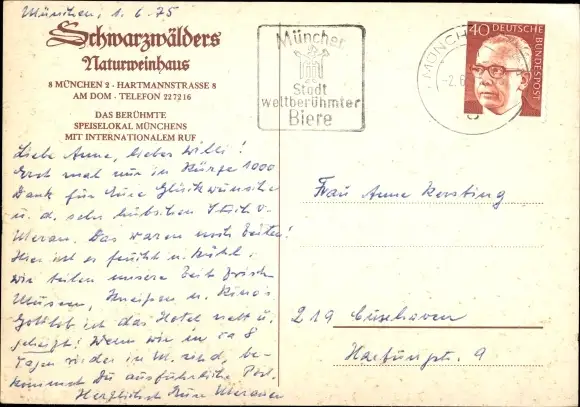 München, 1.6.75
Schwarzwälders
Naturweinhaus
8 MÜNCHEN 2 · HARTMANNSTRASSE 8
AM DOM · TELEFON 227216
DAS BERÜHMTE
SPEISELOKAL MÜNCHENS
MIT INTERNATIONALEM RUF
Liebe Anne, lieber Willi!
Erst mal nur in Kürze 1000
Dank für Eure Glückwünsche
u. d. sehr hübschen
Meran. Das waren noch Zeiten!
Hier ist es feucht u. kühl.
Wir teilen unsere Zeit zwisch.
Museen, Kneipen u. Kino's
Gottlob ist das Hotel nett u.
gepflegt! Wenn wir in ca 8
Tagen wieder in M. sind, be-
kommst Du ausführliche Post.
Herzlichst Eure Meraner
München
Stadt
weltberühmter
Biere
MÜNCH
-2.6
40 DEUTSCHE
BUNDESPOST
Frau Anne Kersting
219 Cuxhaven
Hartungstr. 9